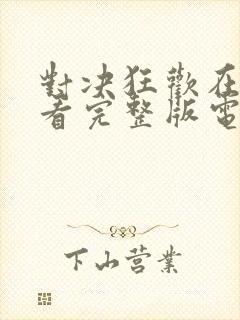 對决狂歡在
看完整版電
下山营業